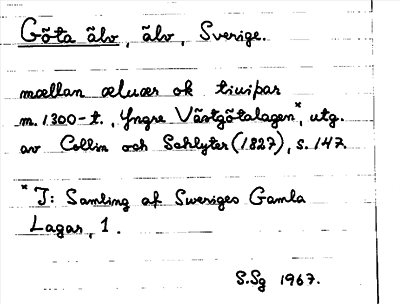 Göta älv, älv, Sverige.
mællan æluær ok tiuiþar
m. 1300-t., Yngre Västgötalagen*, utg.
av Collin och Schlyter (1827), s. 147
* I: Samling af Sweriges Gamla
Lagar, 1.
S.Sg 1967.